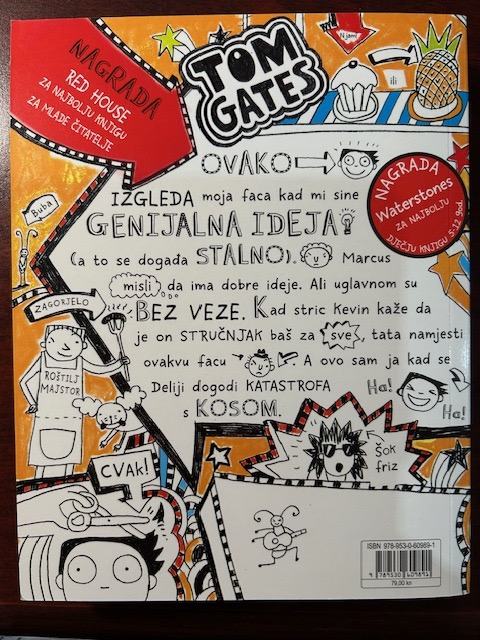 NAGRADA
RED HOUSE
ZA NAJBOLJU KNJIGU
ZA MLADE ČITATELJE
TOM
GATES
Njami
ili
OVAKO
IZGLEDA moja faca kad mi sine
GENIJALNA IDEJA
(a to se događa STALNO). Marcus
misli da ima dobre ideje. Ali uglavnom su
BEZ VEZE. Kad stric Kevin kaže da
je on STRUČNJAK baš za sve, tata namjesti
ovakvu facu. A ovo sam ja kad se
Deliji dogodi KATASTROFA
s KOSOM.
NAGRADA
Waterstones
ZA NAJBOLJU
DJEČJU KNJIGU 5-12 god.
Buba
ZAGORJELO
ROŠTILJ
MAJSTOR
CVAK!
Ha!
Ha!
Šok
friz
ISBN 978-953-0-60989-1
9 789530 609891
79,00 kn